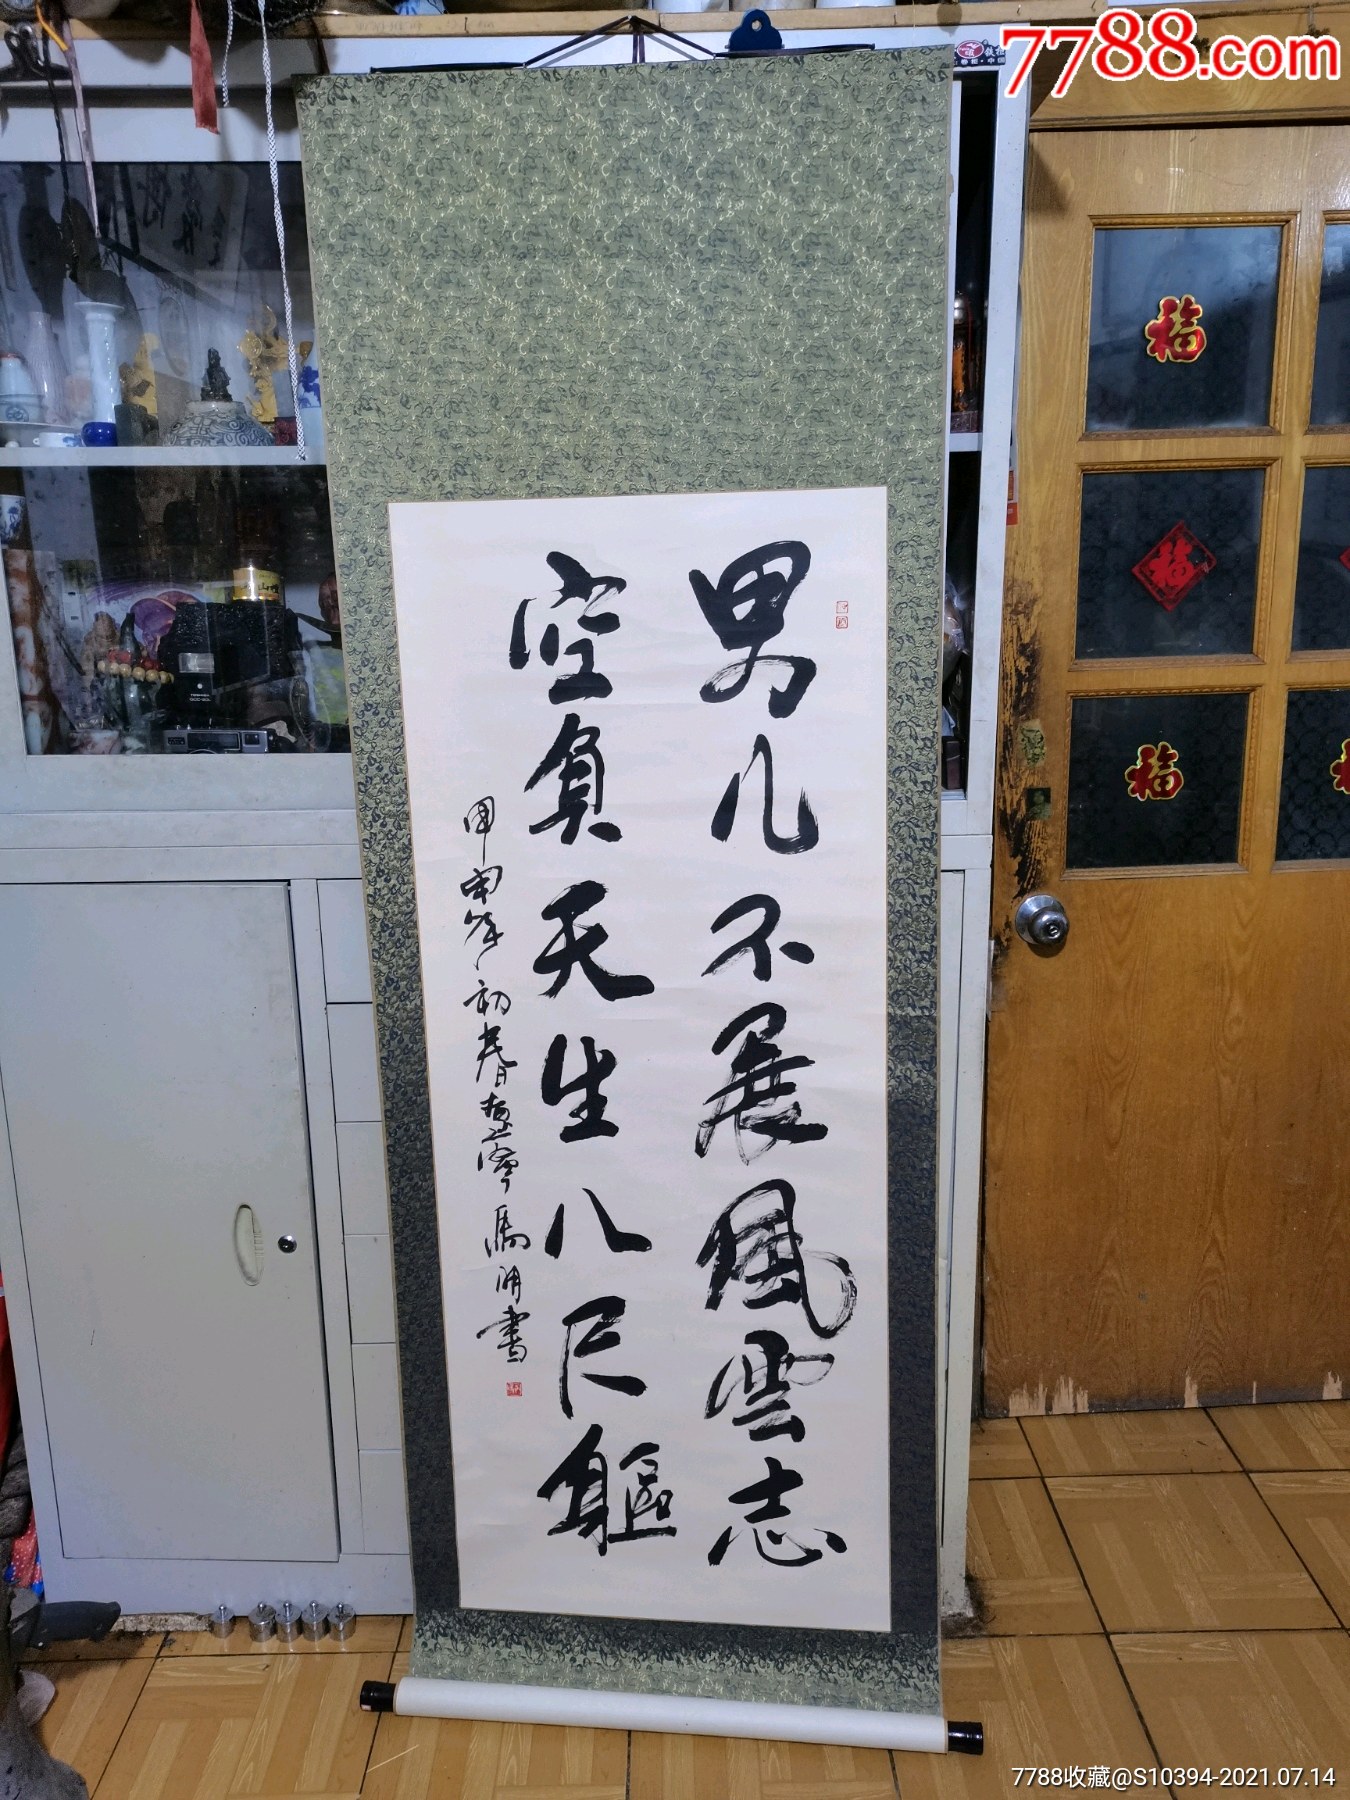 7788.com
男儿不展風雲志
空負天生八尺軀
甲申年初春
書
福
福
福
7788收藏@S10394-2021.07.14